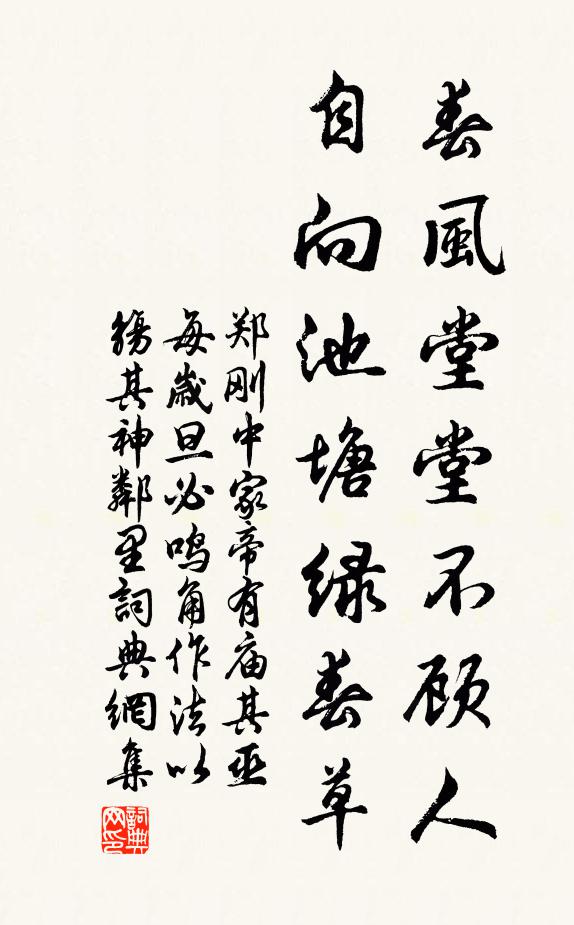 春風堂堂不顾人
自向池塘绿春草
郑刚中家帝有庙其巫
每歲旦必鸣角作法以
觞其神鄰里詞典網集
詞典网印